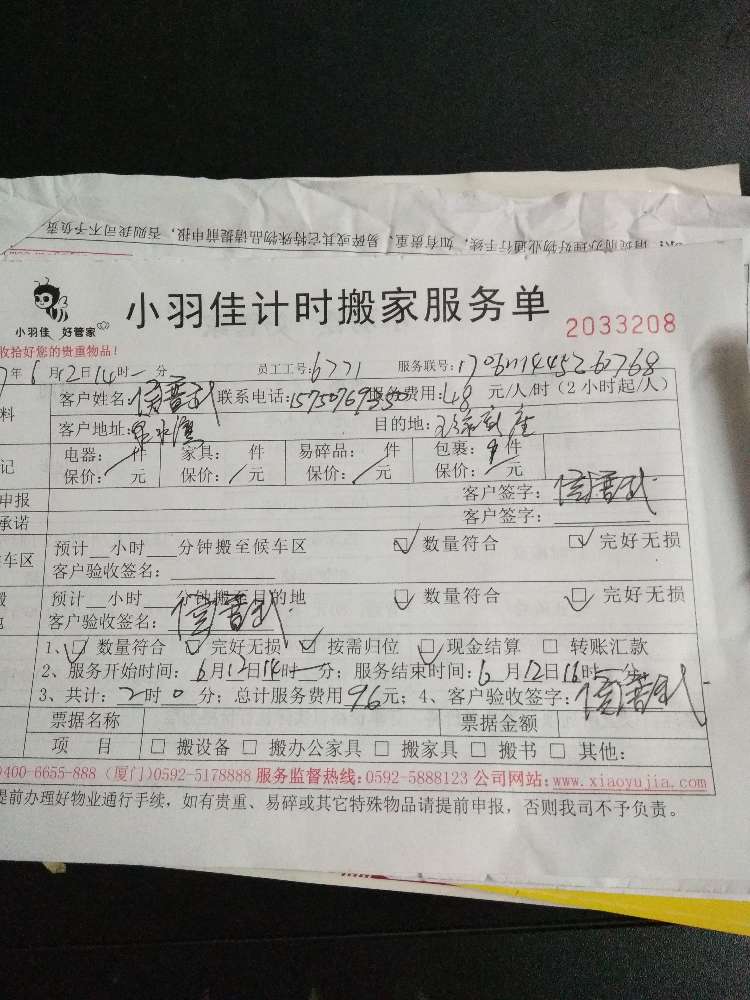 请提前办理好物业通行手续，如有贵重、易碎或其它特殊物品请提前申报，否则我司不予负责
小羽佳 好管家
小羽佳计时搬家服务单
2033208
收拾好您的贵重物品！
7年6月12日14时 分 员工工号：6771 服务联号：
料 客户姓名： 联系电话： 服务费用：48元/人/时（2小时起/人）
客户地址： 目的地：
记 电器： 件 家具： 件 易碎品： 件 包裹： 件
保价： 元 保价： 元 保价： 元 保价： 元
申报 客户签字：
承诺 客户签字：
车区 预计 小时 分钟搬至候车区 数量符合 完好无损
客户验收签名：
预计 小时 分钟搬至目的地 数量符合 完好无损
客户验收签名：
1、 数量符合 完好无损 按需归位 现金结算 转账汇款
2、服务开始时间：6月12日14时 分；服务结束时间：6月12日16时 分
3、共计：2时0分；总计服务费用96元；4、客户验收签字：
票据名称 票据金额
项 目 搬设备 搬办公家具 搬家具 搬书 其他：
400-6655-888 (厦门)0592-5178888 服务监督热线：0592-5888123 公司网站：www.xiaoyujia.com
提前办理好物业通行手续，如有贵重、易碎或其它特殊物品请提前申报，否则我司不予负责。